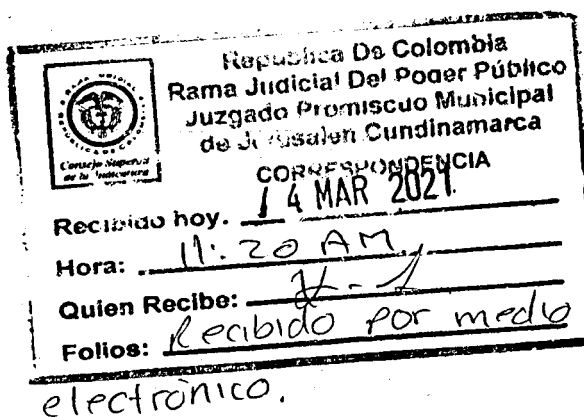 Republica De Colombia
Rama Judicial Del Poder Público
Juzgado Promiscuo Municipal
de Jerusalen Cundinamarca
Consejo Superior
de la Judicatura
CORRESPONDENCIA
Recibido hoy. 14 MAR 2021
Hora: 11:20 AM
Quien Recibe:
Folios: Recibido por medio
electrónico.